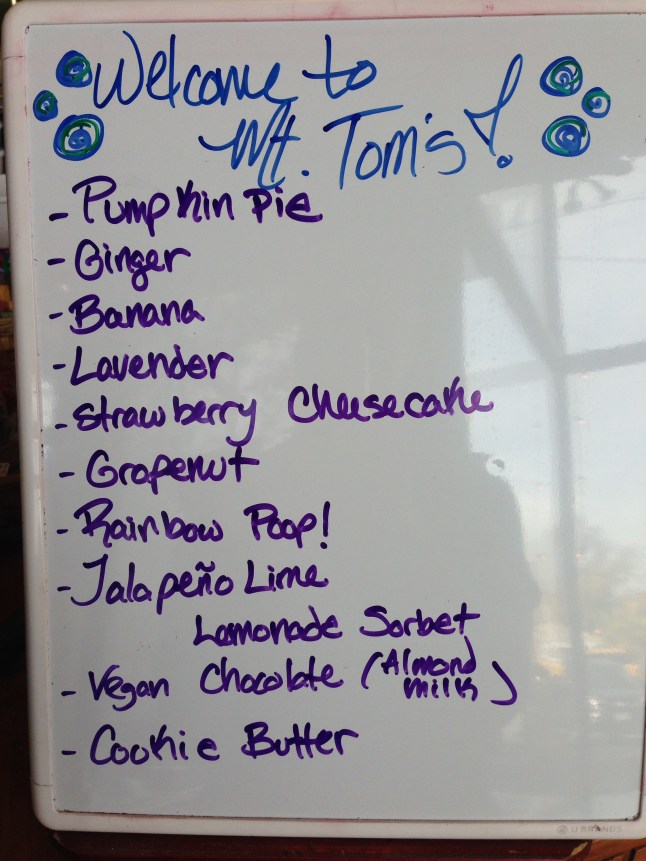 Welcome to
Mt. Tom's!
- Pumpkin Pie
- Ginger
- Banana
- Lavender
- Strawberry Cheesecake
- Grapenut
- Rainbow Poop!
- Jalapeño Lime
Lemonade Sorbet
- Vegan Chocolate (Almond
milk)
- Cookie Butter
U BRANDS